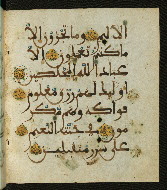 الاليم وما تجزون الا
ما كنتم تعملون الا
عباد الله المخلصين
اوليك لهم رزق معلوم
فواكه وهم مكر
مون في جنت النعيم
على سرر متقبلين